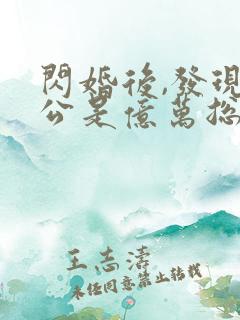 閃婚後,發現
公是億萬總
王志濤
未经同意禁止转载